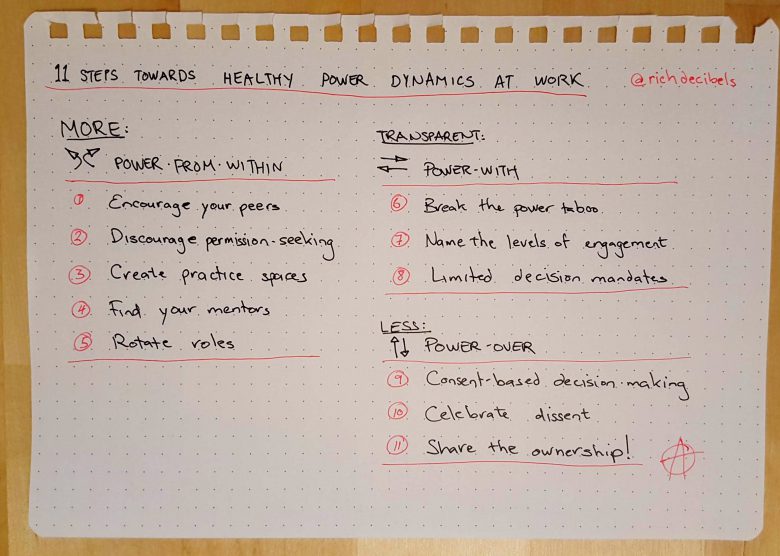 11 STEPS TOWARDS HEALTHY POWER DYNAMICS AT WORK
@richdecibels
MORE:
POWER-FROM-WITHIN
1 Encourage your peers
2 Discourage permission-seeking
3 Create practice spaces
4 Find your mentors
5 Rotate roles
TRANSPARENT:
POWER-WITH
6 Break the power taboo
7 Name the levels of engagement
8 Limited decision mandates
LESS:
POWER-OVER
9 Consent-based decision-making
10 Celebrate dissent
11 Share the ownership!